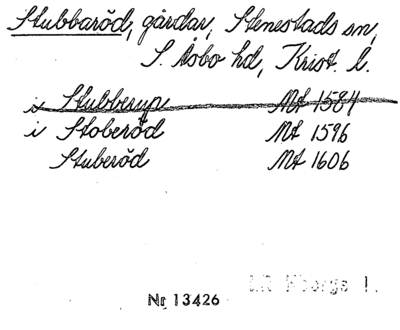 Stubbaröd, gårdar, Stenestads sn,
S. Åsbo hd, Krist. l.
i Stubberup Mt 1584
i Stoberöd Mt 1596
Stuberöd Mt 1606
Nr 13426